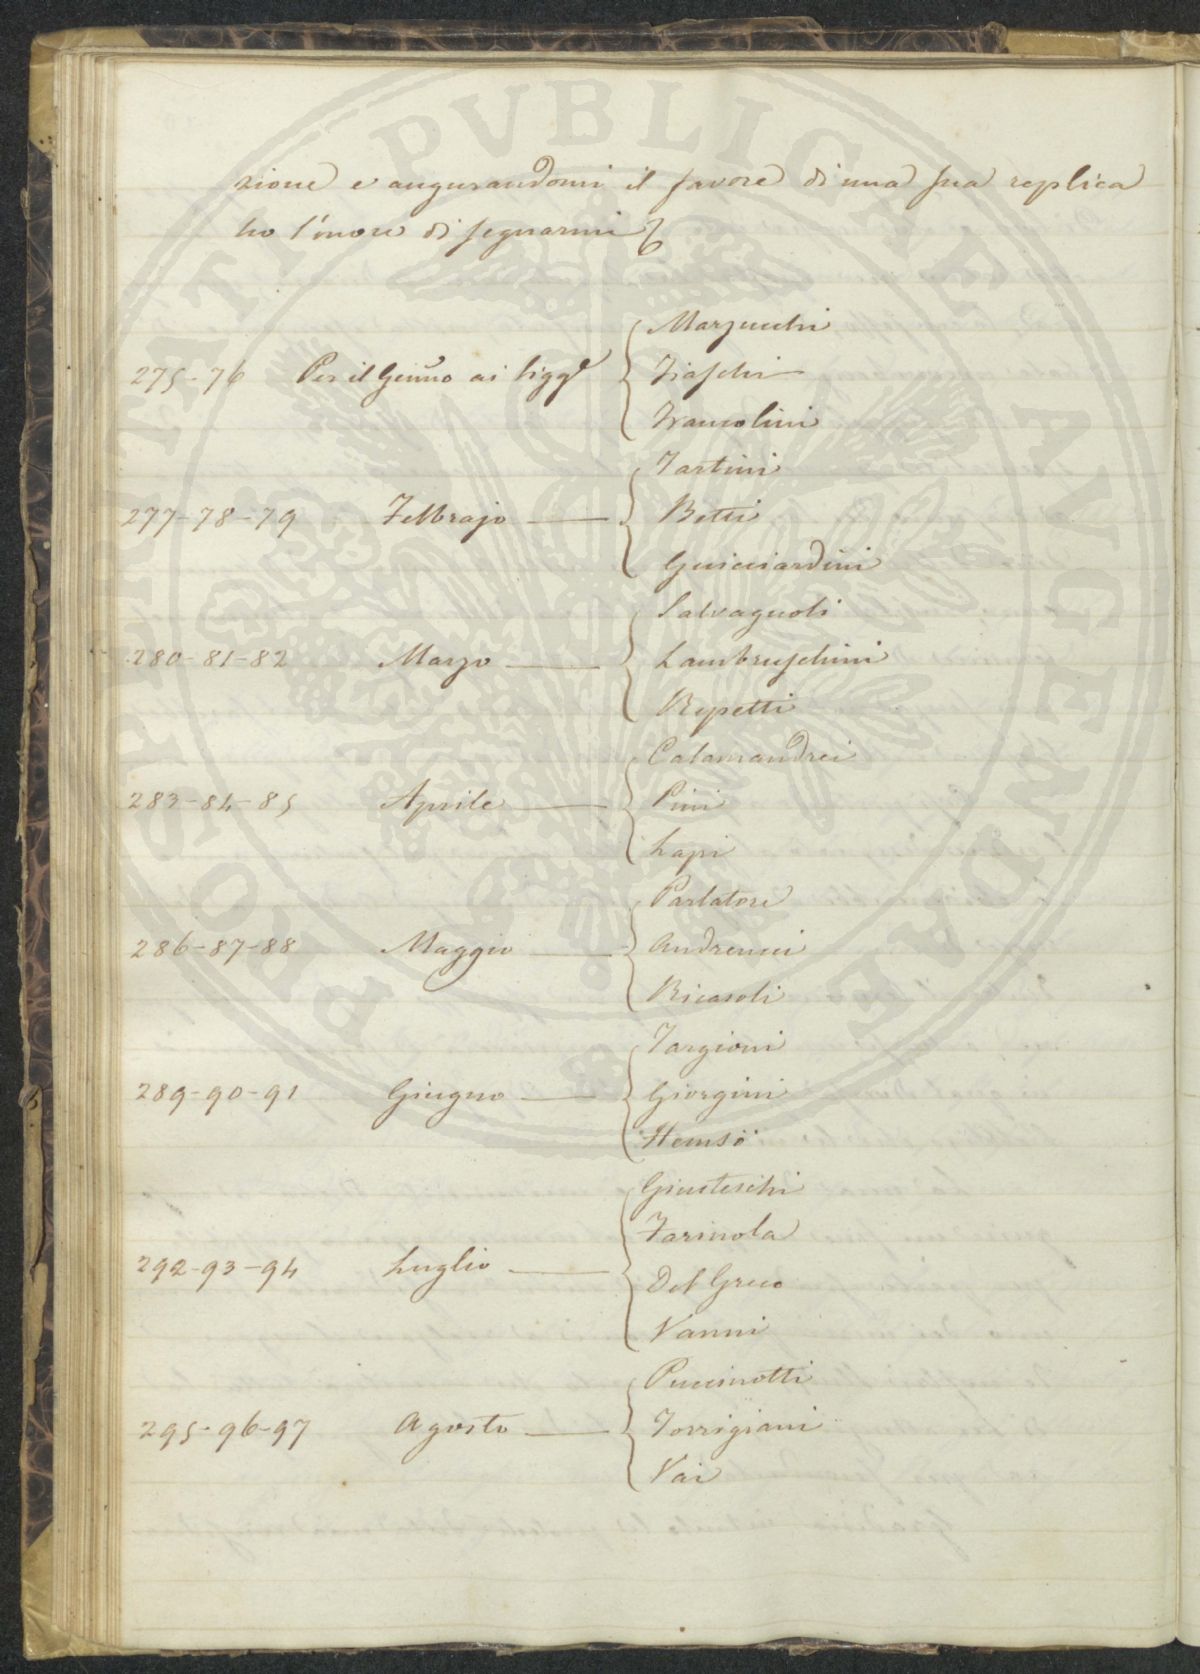 zione e augurandomi il favore di una sua replica
ho l'onore di segnarmi
275-76 Per il Genno ai Sigg.i Marzucchi
Fiaschi
Francolini
277-78-79 Febbrajo Tartini
Betti
Guicciardini
280-81-82 Marzo Salvagnoli
Lambruschini
Repetti
283-84-85 Aprile Calamandrei
Pini
Lapi
286-87-88 Maggio Parlatore
Andreucci
Ricasoli
289-90-91 Giugno Targioni
Giorgini
Hemsö
292-93-94 Luglio Giusteschi
Farinola
Del Greco
Vanni
295-96-97 Agosto Puccinotti
Torrigiani
Vai